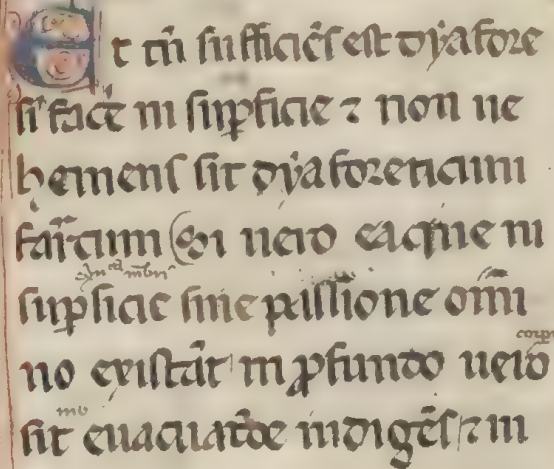 Et tñ sufficiẽs est dẏafore
si facẽ in suꝑficie ⁊ non ue
hemens sit dẏaforeticum
farr̃cum Si uero ea que in
suꝑficie sine passione om̃i
no existãt in ꝓfundo uero
sit euacuatõe indigẽs ⁊ in